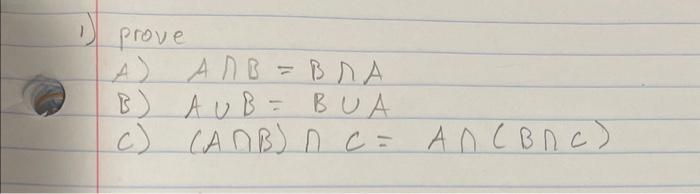 1) prove
A) A ∩ B = B ∩ A
B) A ∪ B = B ∪ A
C) (A ∩ B) ∩ C = A ∩ (B ∩ C)